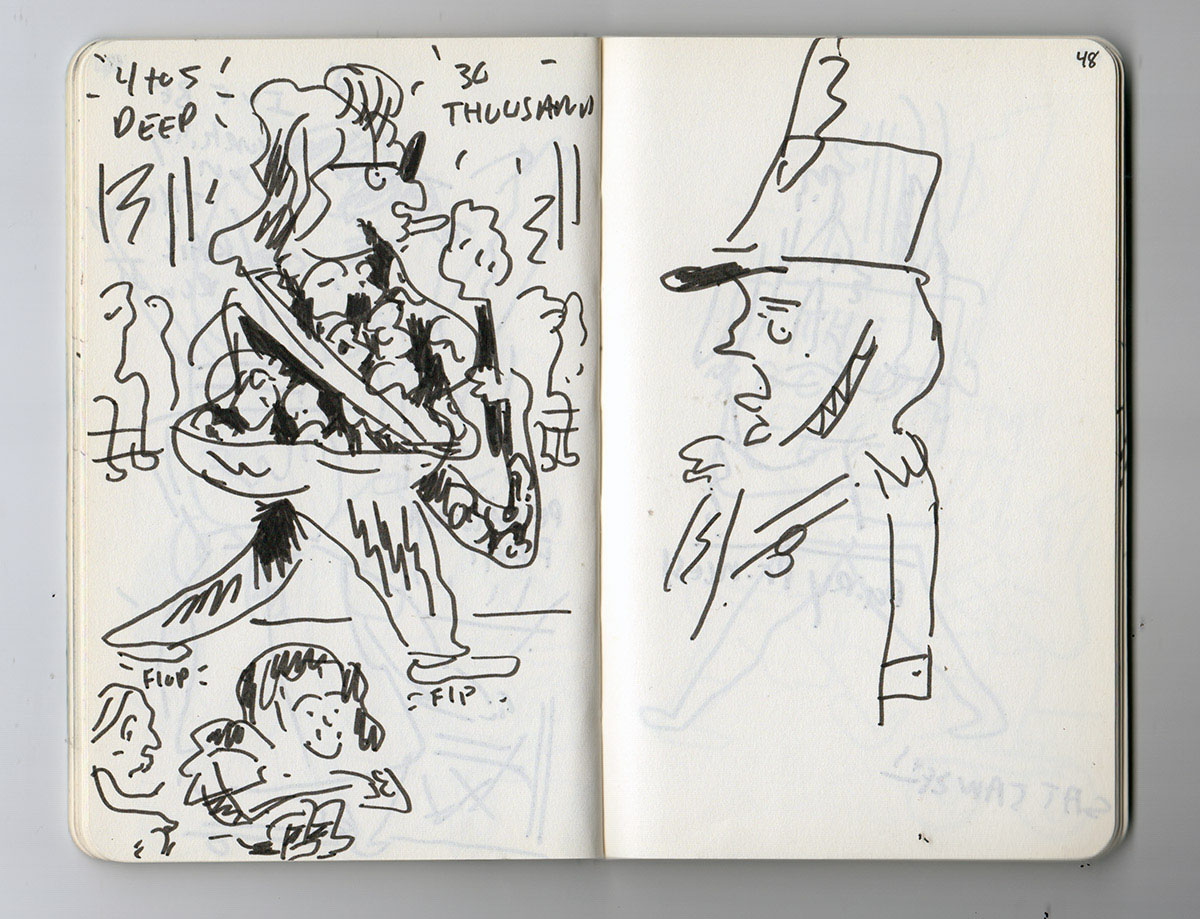 4 to 5
DEEP
30
THOUSAND
48
FLOP
FLIP